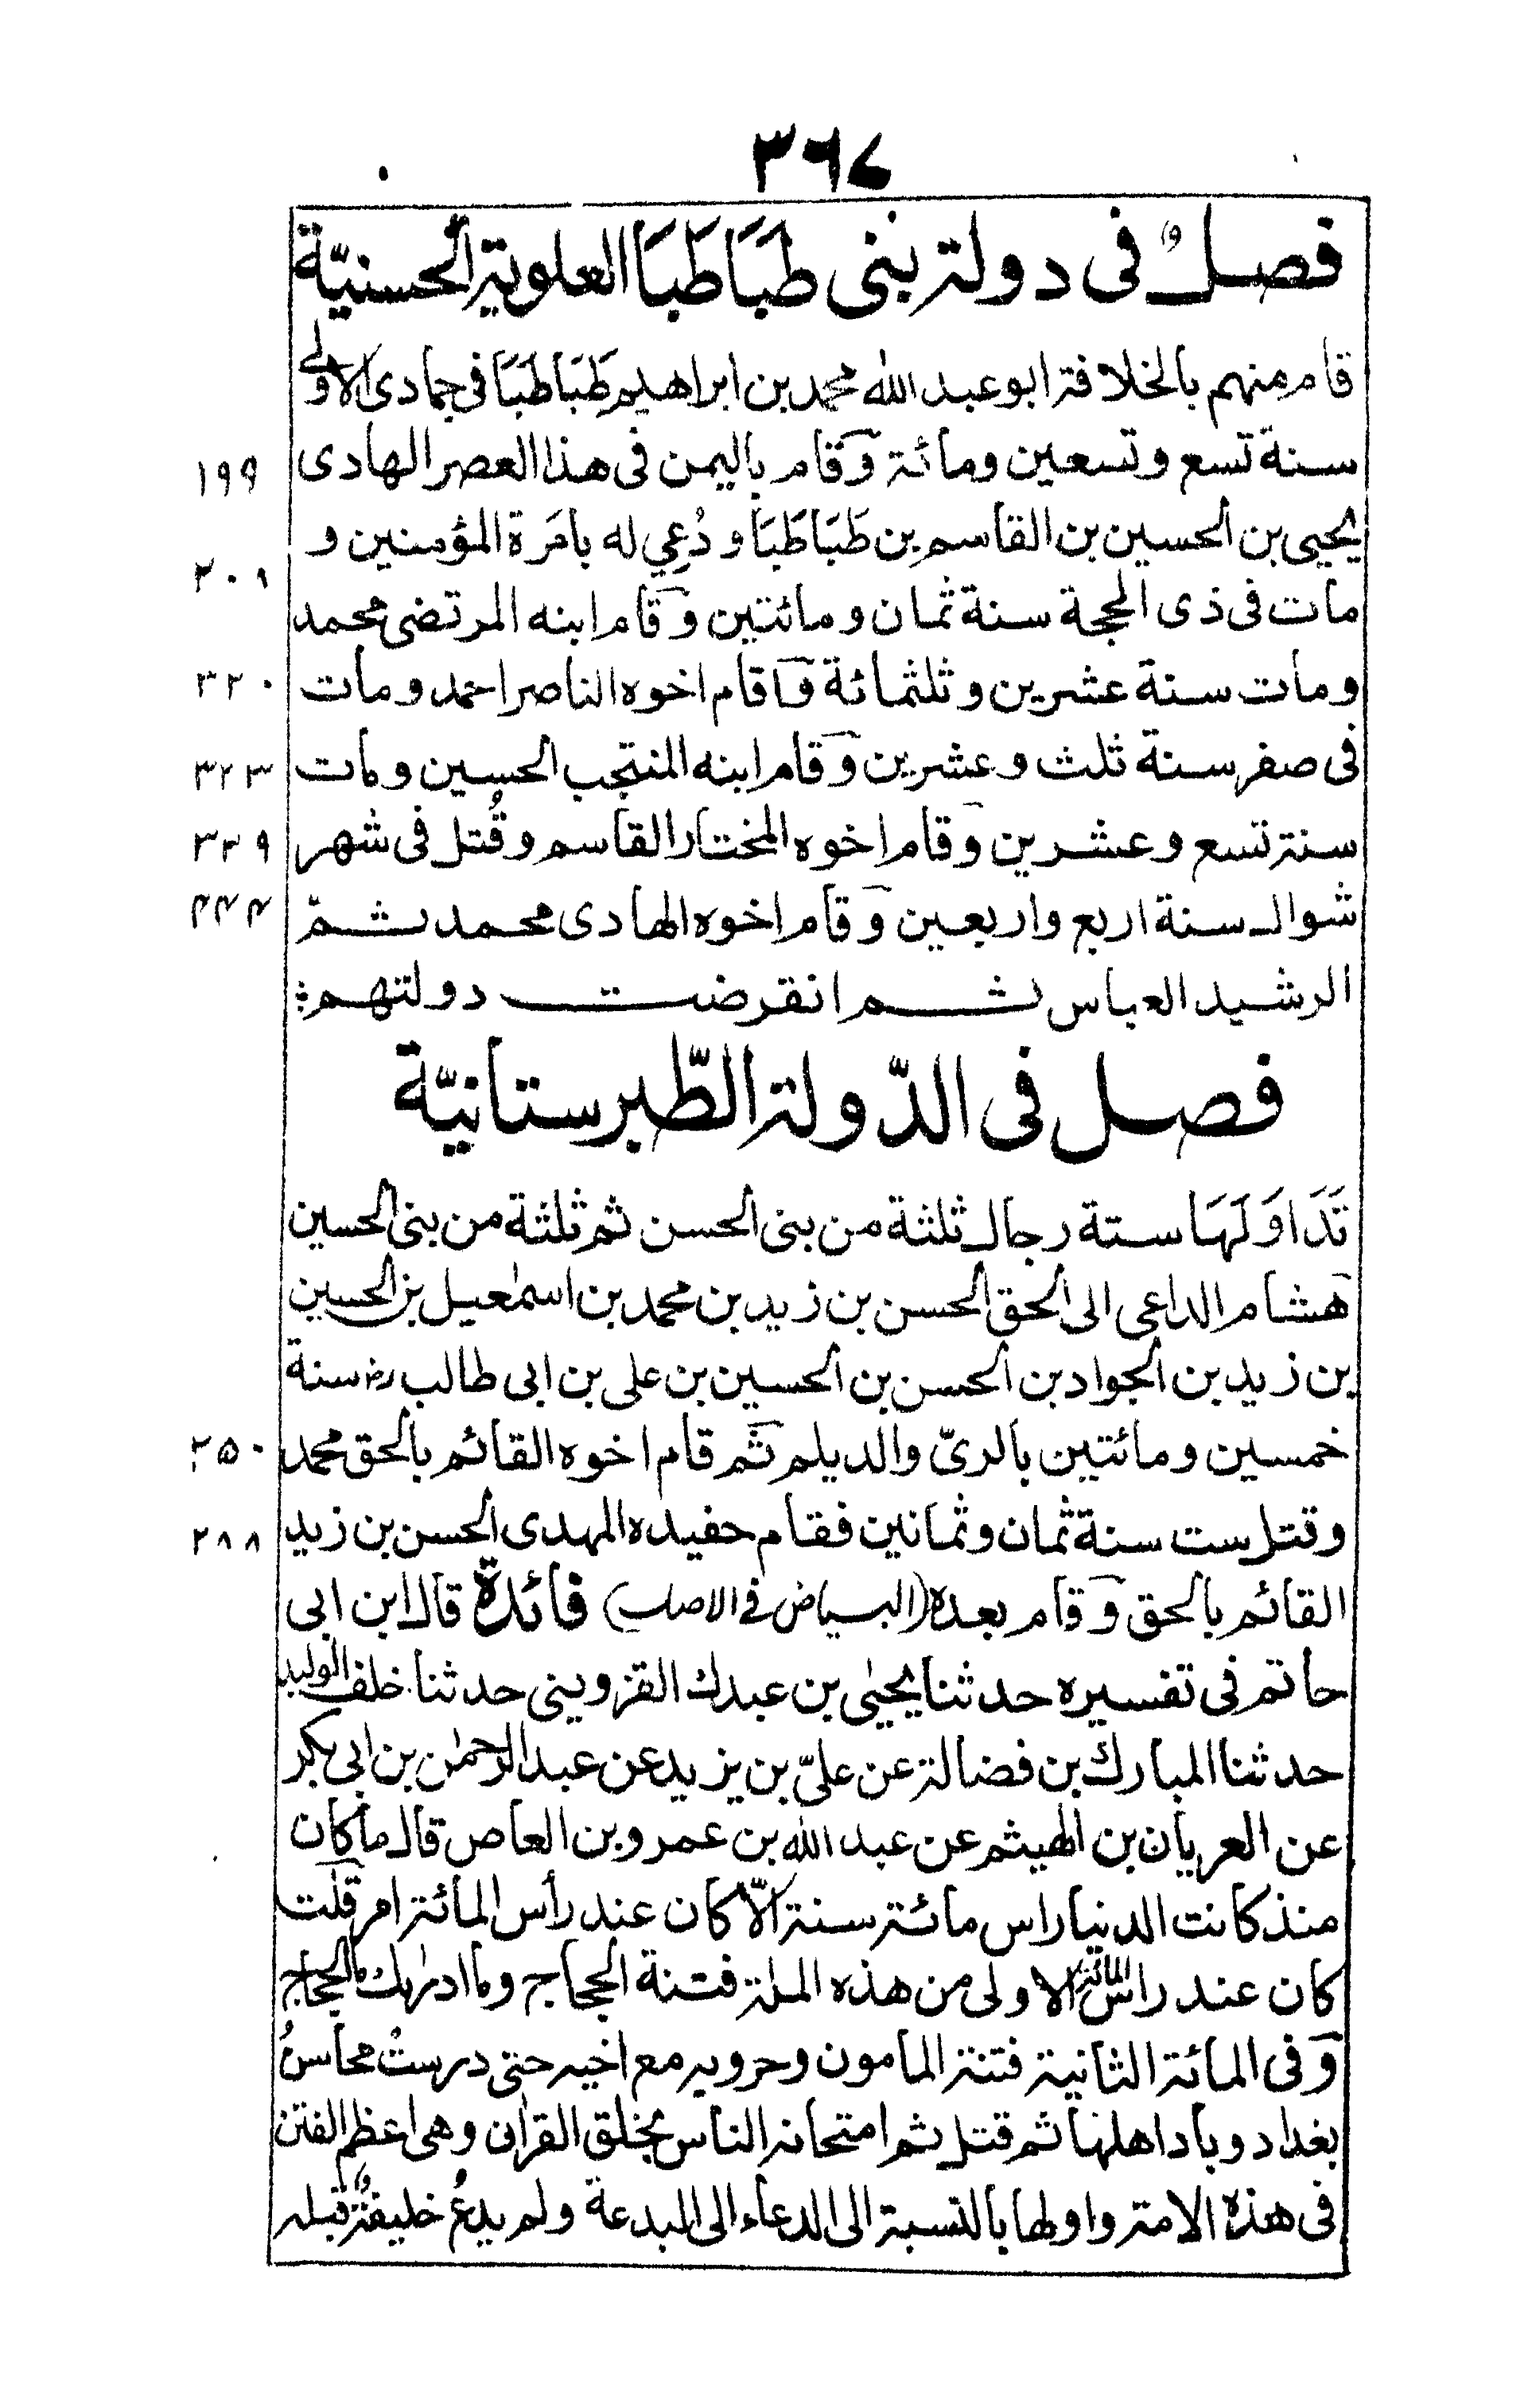 ٣٦٧
فصلٌ فى دولة بنى طَبَاطَبَا العلوية الحسنيّة
قام منهم بالخلافة ابو عبد الله محمد بن ابراهيم طَبَاطَبَا فى جمادى الاولى
سنة تسع وتسعين ومائة وقام باليمن فى هذا العصر الهادى ١٩٩
يحيى بن الحسين بن القاسم بن طَبَاطَبَا ودُعِي له بامَرة المؤمنين و
مات فى ذى الحجة سنة ثمان ومائتين وقام ابنه المرتضى محمد ٢٠٨
ومات سنة عشرين وثلثمائة وقام اخوه الناصر احمد ومات ٣٢٠
فى صفر سنة ثلث وعشرين وقام ابنه المنتجب الحسين ومات ٣٢٣
سنة تسع وعشرين وقام اخوه المختار القاسم وقُتل فى شهر ٣٢٩
شوال سنة اربع واربعين وقام اخوه الهادى محمد ثمّ ٣٤٤
الرشيد العباس ثم انقرضت دولتهم
فصل فى الدّولة الطّبرستانيّة
تَدَاوَلَهَا ستة رجال ثلثة من بنى الحسن ثم ثلثة من بنى الحسين
هشام الداعى الى الحق الحسن بن زيد بن محمد بن اسمٰعيل بن الحسين
بن زيد بن الجواد بن الحسن بن الحسين بن على بن ابى طالب رض سنة
خمسين ومائتين بالرىّ والديلم ثم قام اخوه القائم بالحق محمد ٢٥٠
وقتل ست سنة ثمان وثمانين فقام حفيده المهدى الحسن بن زيد ٢٨٨
القائم بالحق وقام بعده (البياض فى الاصل) فائدة قال ابن ابى
حاتم فى تفسيره حدثنا يحيىٰ بن عبدك القزوينى حدثنا خلف الوليد
حدثنا المبارك بن فضالة عن علىّ بن يزيد عن عبد الرحمٰن بن ابى بكر
عن العريان بن الهيثم عن عبد الله بن عمرو بن العاص قال ما كان
منذ كانت الدنيا راس مائة سنة الّا كان عند رأس المائة امر قلت
كان عند راس المائة الاولى من هذه الملة فتنة الحجاج وما ادرٰىك ما الحجاج
وفى المائة الثانية فتنة المامون وحروبه مع اخيه حتى درستْ محاسنُ
بغداد وباد اهلها ثم قتل ثم امتحانه الناس بخلق القران وهى اعظم الفتن
فى هذه الامة واولها بالنسبة الى الدعاء الى البدعة ولم يدعُ خليفةٌ قبله